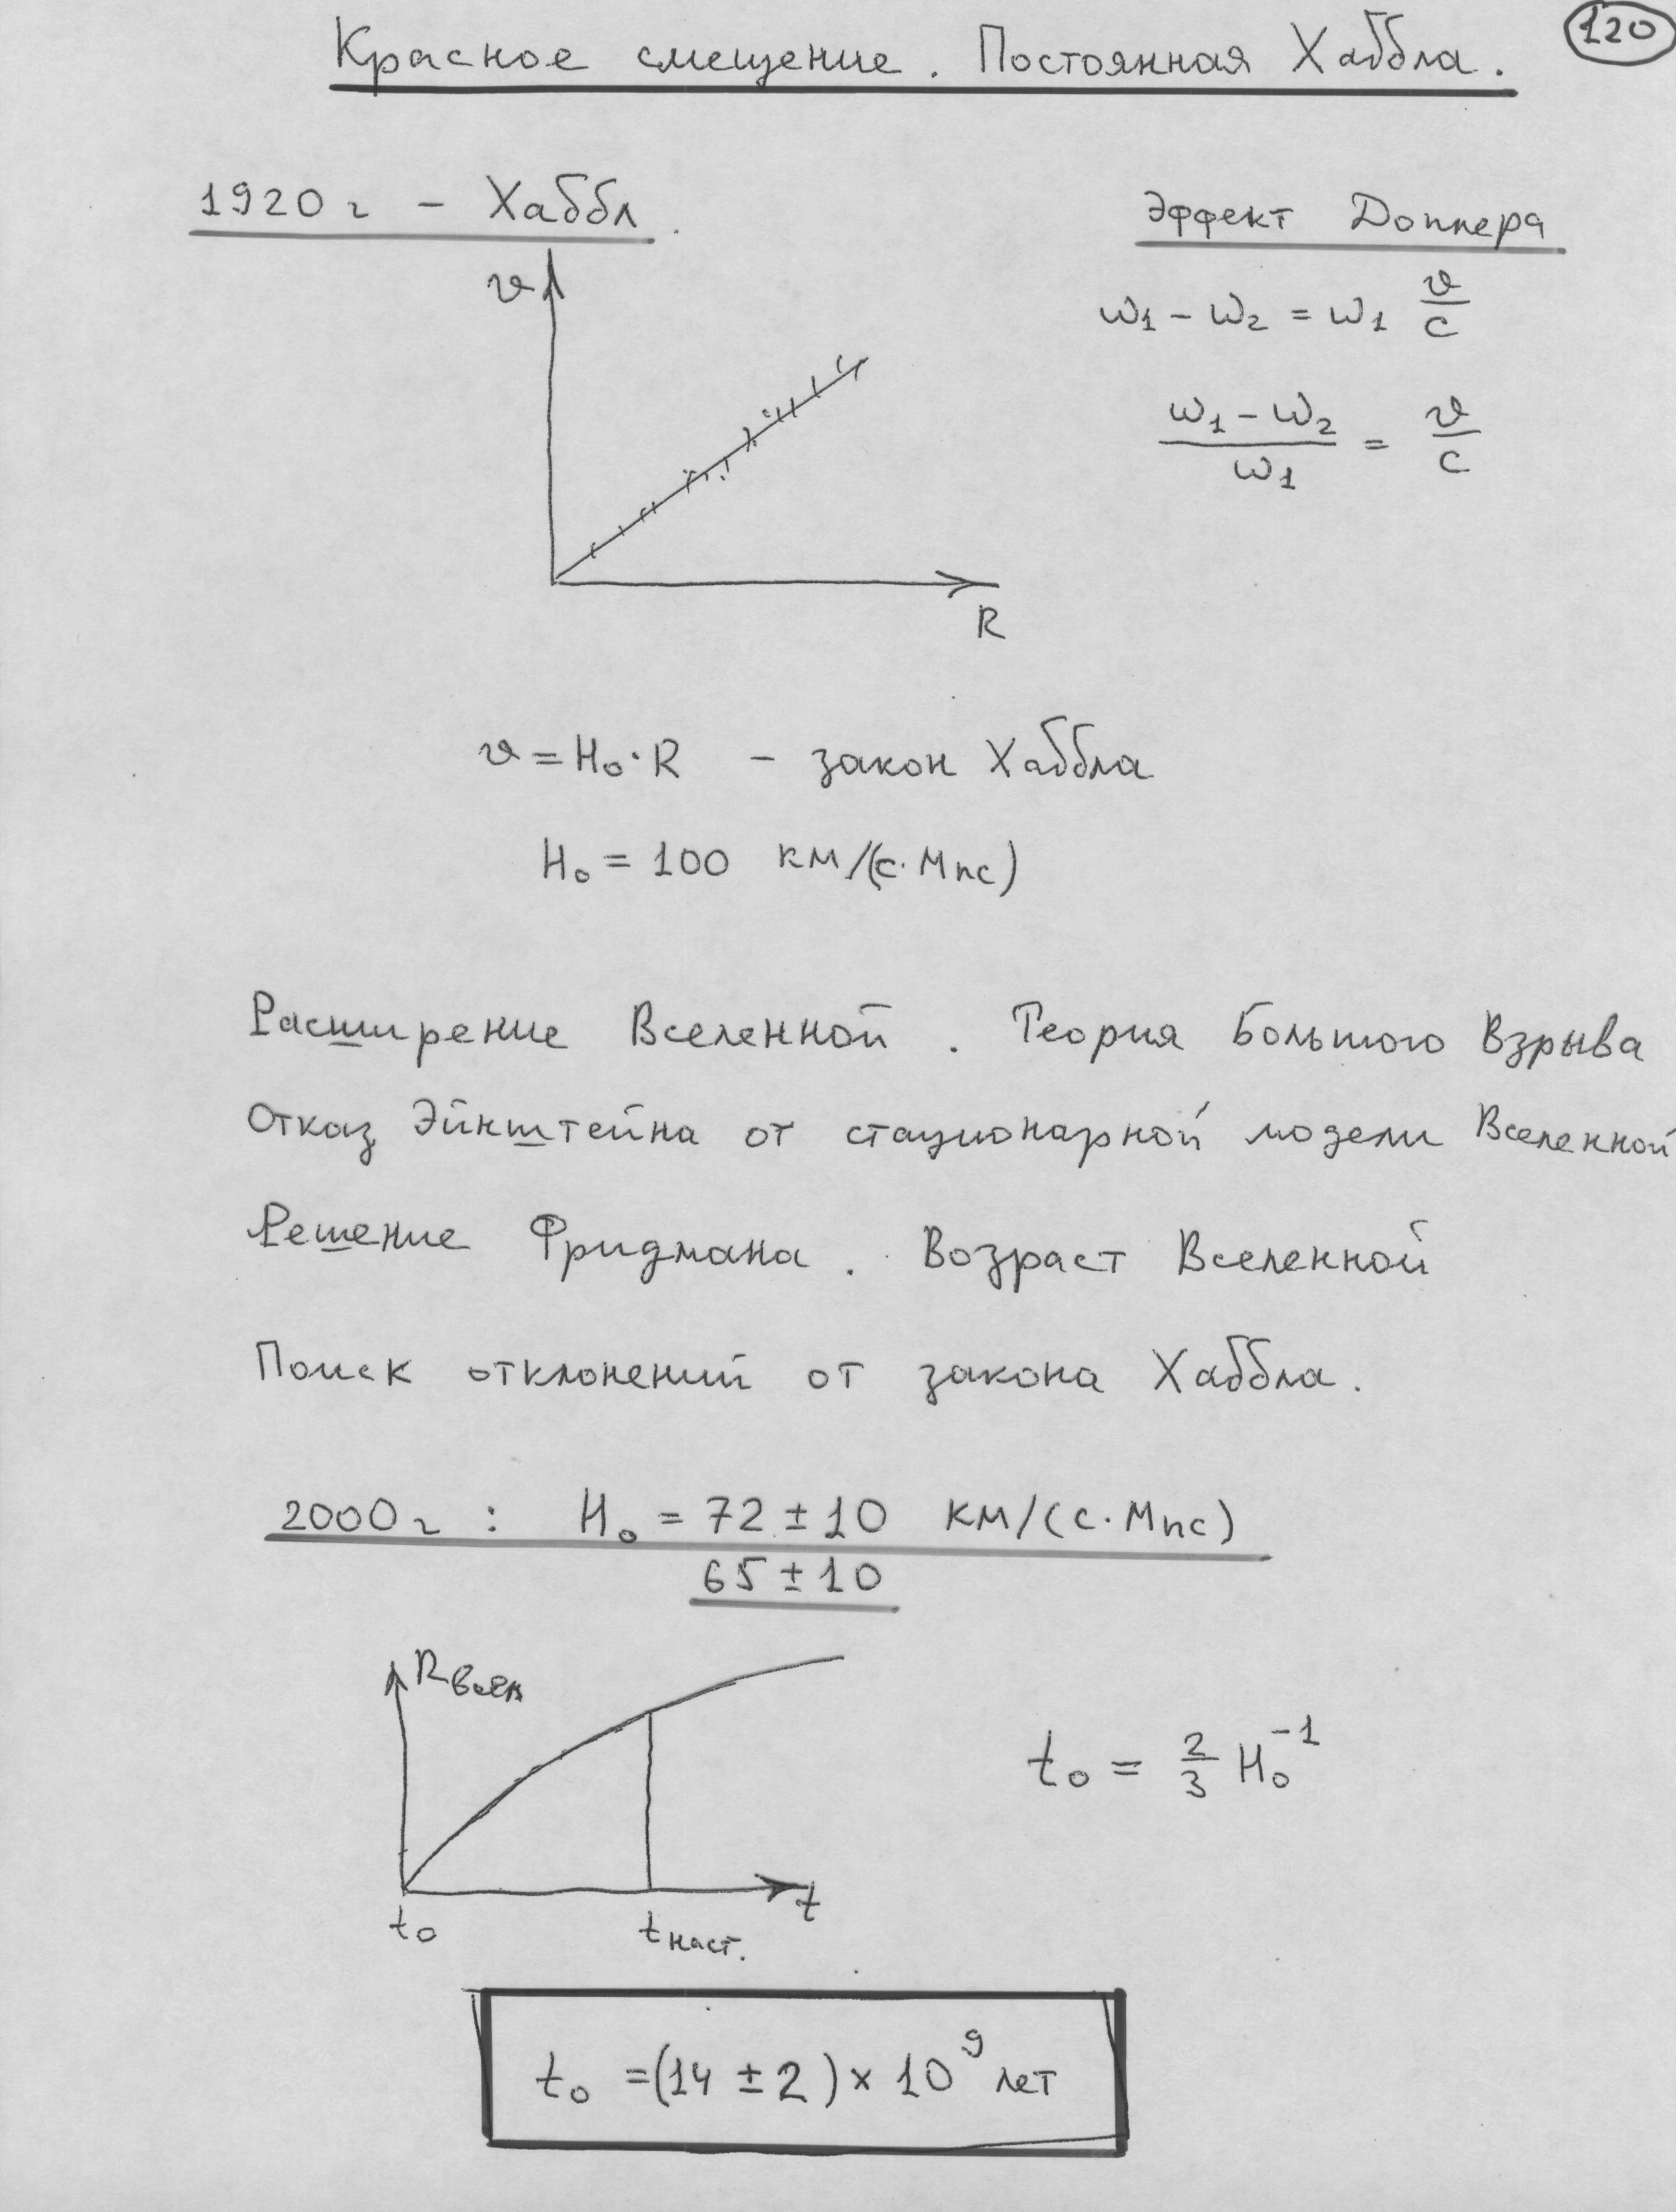 120
Красное смещение. Постоянная Хаббла.
1920 г - Хаббл
Эффект Доплера
v
ω1 - ω2 = ω1 v/c
(ω1 - ω2)/ω1 = v/c
R
v = H₀·R - закон Хаббла
H₀ = 100 км/(с·Мпс)
Расширение Вселенной. Теория Большого Взрыва
Отказ Эйнштейна от стационарной модели Вселенной
Решение Фридмана. Возраст Вселенной
Поиск отклонений от закона Хаббла.
2000 г : H₀ = 72 ± 10 км/(с·Мпс)
65 ± 10
Rвсел
t₀ = 2/3 H₀⁻¹
t
t₀
tнаст.
t₀ = (14 ± 2) × 10⁹ лет